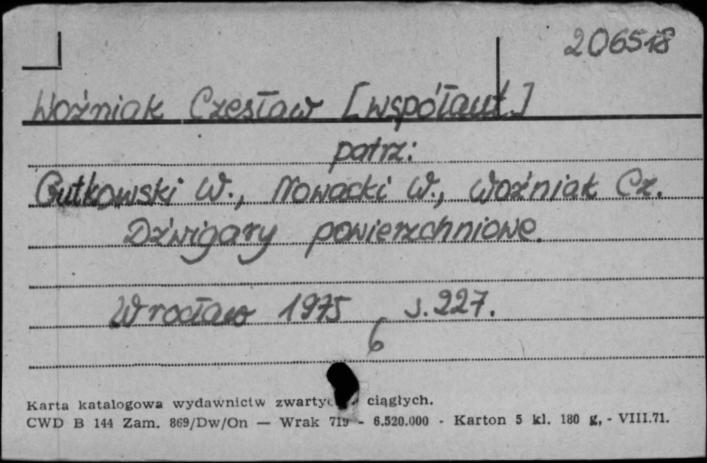 206518
Woźniak Czesław [współaut.]
patrz:
Gutkowski W., Nowacki W., Woźniak Cz.
Dźwigary powierzchniowe.
Wrocław 1975 s. 227.
6
Karta katalogowa wydawnictw ciągłych.
CWD B 144 Zam. 869/Dw/On — Wrak - 6.520.000 - Karton 5 kl. 180 g, - VIII.71.